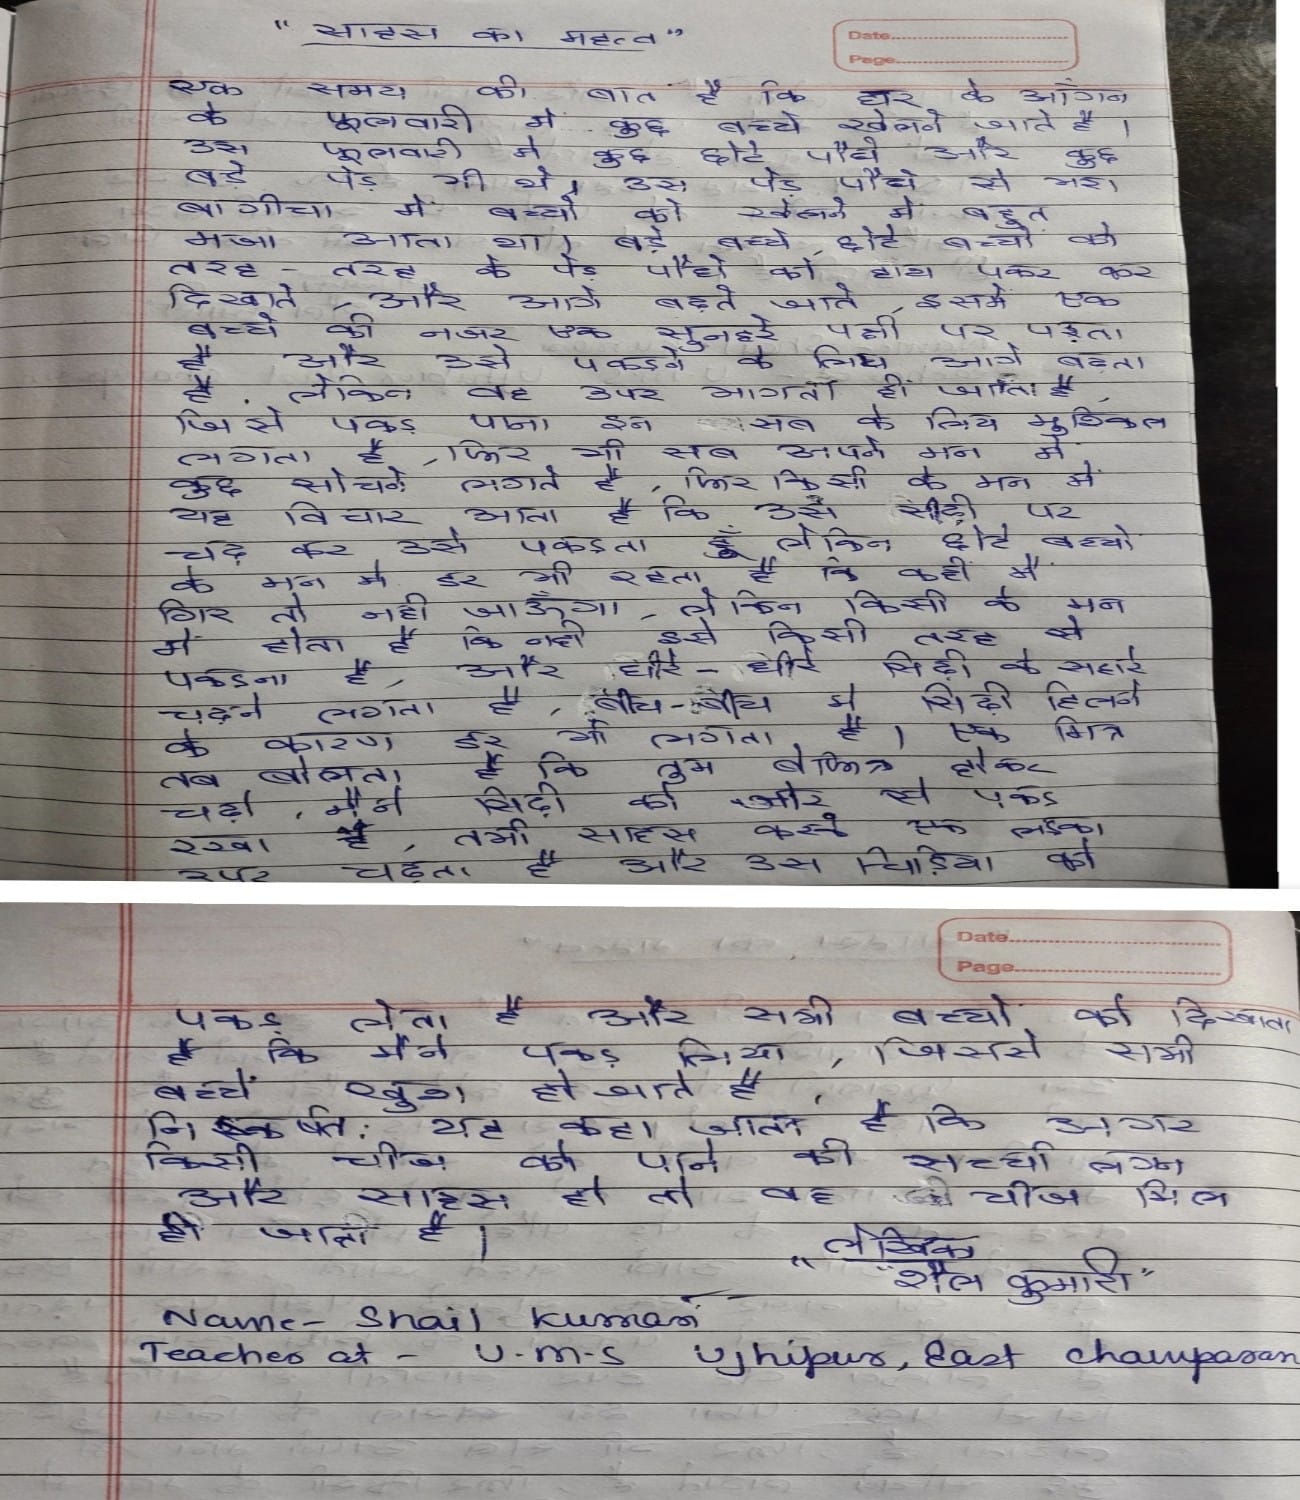 " साहस का महत्व "
Date
Page
एक समय की बात है कि घर के आँगन
के फूलवारी में कुछ बच्चे खेलने जाते है ।
उस फूलवारी में कुछ छोटे पौधे और कुछ
बड़े पेड़ भी थे, उस पेड़ पौधे से भरा
बागीचा में बच्चों को खेलने में बहुत
मजा आता था। बड़े बच्चे, छोटे बच्चों को
तरह - तरह के पेड़ पौधों को हाथ पकर कर
दिखाते, और आगे बढ़ते जाते, इसमें एक
बच्चे की नजर एक सुनहरे पक्षी पर पड़ता
है और उसे पकडने के लिए आगे बढ़ता
है, लेकिन वह उपर भागता ही जाता है,
जिसे पकड़ पाना इन सब के लिय मुश्किल
लगता है, फिर भी सब अपने मन में
कुछ सोचने लगते है, फिर किसी के मन में
यह विचार आता है कि उसे सीढ़ी पर
चढ़ कर उसे पकडता हूँ लेकिन छोटे बच्चो
के मन में डर भी रहता है कि कहीं मैं
गिर तो नही जाऊँगा, लेकिन किसी के मन
में होता है कि नही इसे किसी तरह से
पकडना है, और धीरे - धीरे सिढ़ी के सहारे
चढ़ने लगता है, बीच - बीच में सिढ़ी हिलने
के कारण डर भी लगता है । एक मित्र
तब बोलता है कि तुम बेफिक्र होकर
चढ़ो, मैंने सिढ़ी को जोर से पकड
रखा है, तभी साहस करके एक लडका
उपर चढ़ता है और उस चिड़िया को
Date
Page
पकड़ लेता है और सभी बच्चों को दिखाता
है कि मैंने पकड़ लिया, जिससे सभी
बच्चें खुश हो जाते है,
निष्कर्षत: यह कहा जाता है कि अगर
किसी चीज को पाने की सच्ची लगन
और साहस हो तो वह चीज मिल
ही जाती है |
" लेखिका
"शैल कुमारी"
Name- Shail Kumari
Teacher at - U.M.S Ujhipur, East champaran